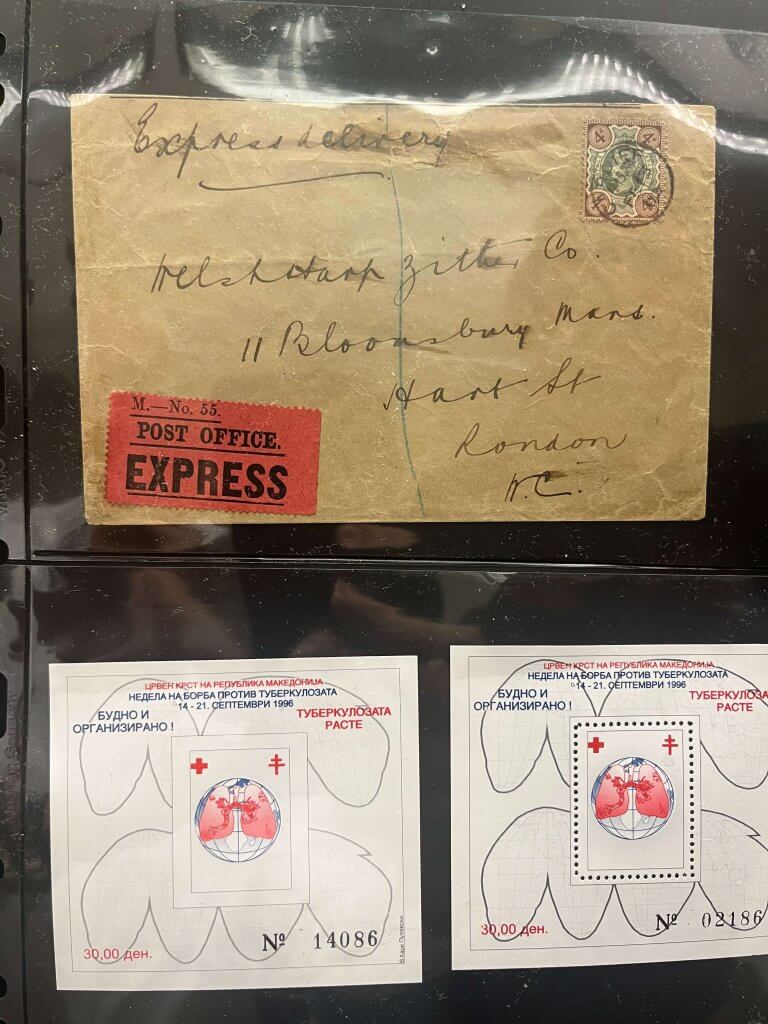 Express delivery
4d 4d
4d 4d
Welsh Harp Zither Co.
11 Bloomsbury Mans.
Hart St
London
W.C.
M.—No. 55.
POST OFFICE.
EXPRESS
ЦРВЕН КРСТ НА РЕПУБЛИКА МАКЕДОНИЈА
НЕДЕЛА НА БОРБА ПРОТИВ ТУБЕРКУЛОЗАТА
14 - 21. СЕПТЕМВРИ 1996
БУДНО И
ОРГАНИЗИРАНО !
ТУБЕРКУЛОЗАТА
РАСТЕ
30,00 ден.
№ 14086
ЦРВЕН КРСТ НА РЕПУБЛИКА МАКЕДОНИЈА
НЕДЕЛА НА БОРБА ПРОТИВ ТУБЕРКУЛОЗАТА
14 - 21. СЕПТЕМВРИ 1996
БУДНО И
ОРГАНИЗИРАНО !
ТУБЕРКУЛОЗА
РАСТЕ
30,00 ден.
№ 02186